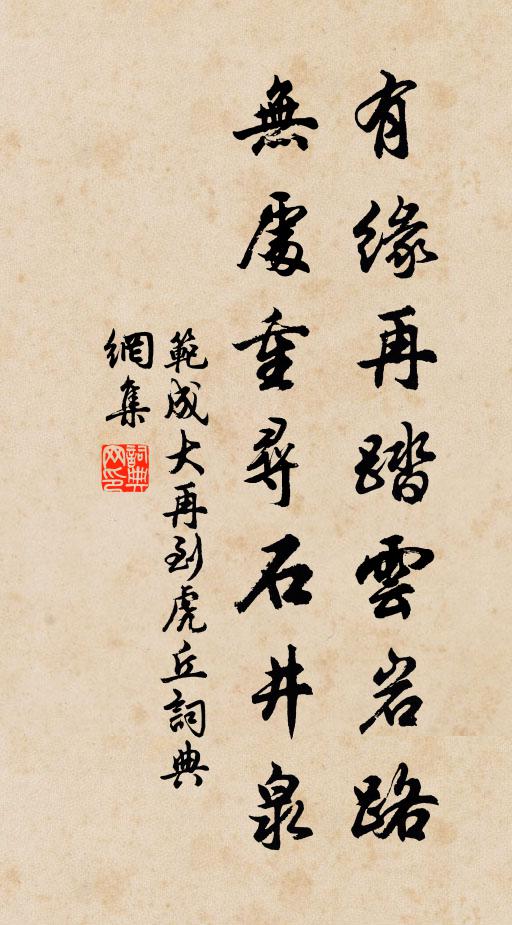 有緣再踏雲岩路
無處重尋石井泉
範成大再到虎丘詞典
網集
詞典
网印